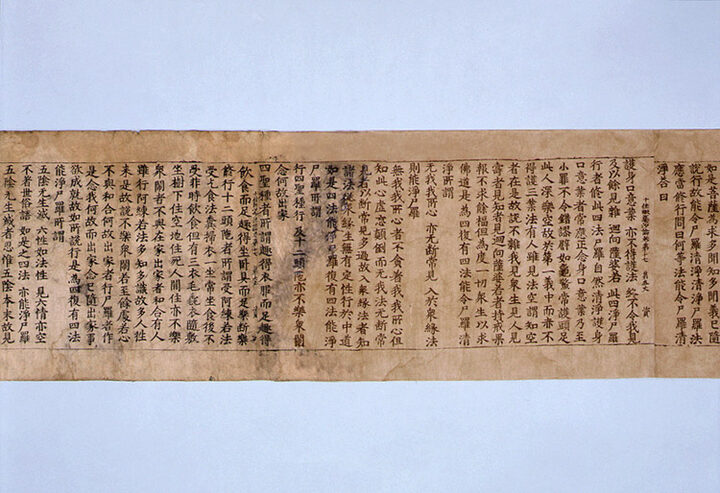 如是菩薩樂求多聞知多聞義已隨
說行故能令尸羅清淨清淨尸羅法
應當修行問曰何等法能令尸羅清
淨答曰
十住毗婆沙論第十七 資
護身口意業 亦不得護法 終不令我見
及以餘見雜 迴向薩婆若 此四淨尸羅
行者修此四法尸羅自然清淨護身
口意業者常應正念身口意業乃至
小罪不令錯謬譬如龜鼈常護頭足
此人深樂空故於第一義中而亦不
得護三業法有人雖見法空謂知空
者在是故說不雜我見衆生見人見
壽者見知者見迴向薩婆若者持戒果
報不求餘福但為度一切衆生以求
佛道是為四復有四法能令尸羅清
淨所謂
無我我所心 亦無斷常見 入於衆緣法
則能淨尸羅
無我我所心者不貪著我我所心但
知此心虛妄顛倒而無我法無斷常
見者以斷常見多過故入衆緣法者知
諸法從衆緣生無有定性行於中道
如是四法能淨尸羅復有四法能淨
尸羅所謂
行四聖種行 及十二頭陀 亦不樂衆鬧
念何故出家
四聖種者所謂趣得衣服而足趣得
飲食而足趣得坐臥具而足樂斷樂
修行十二頭陀者所謂受阿練若法
受乞食法糞掃衣一坐常坐食後不
受非時飲食但有三衣毛毳衣隨敷
坐樹下住空地住死人間住亦不樂
衆鬧者不與在家出家者和合有人
雖行阿練若法多知多識故多人往
來是故說不樂衆鬧若至餘處若心
不與和合何故出家者行尸羅者作
是念我何故而出家念已隨出家事
欲成就故如所說行是為四復有四法
能淨尸羅所謂
五陰無生滅 六性如法性 見六情亦空
不著世俗語 如是之四法 亦能淨尸羅
五陰無生滅者思惟五陰本末故見